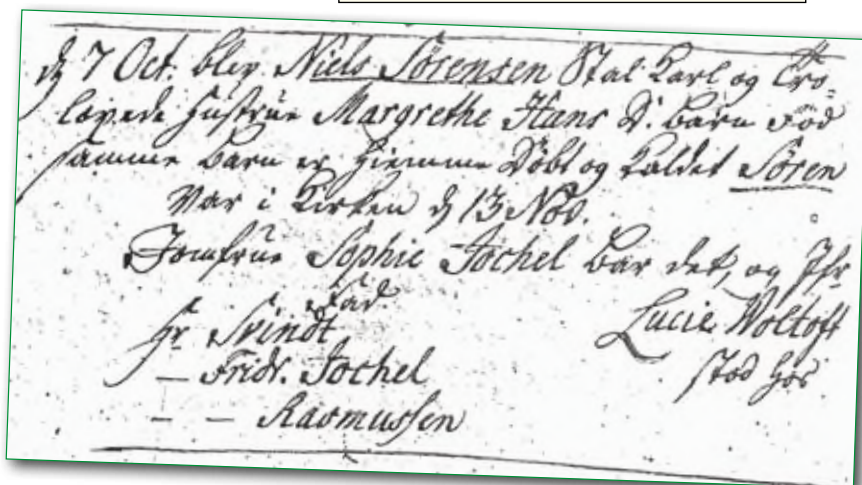 d 7 Oct. blev Niels Sörensen Stal Karl og Tro-
lovede Hustrue Margrethe Hans D. barn Född
samme barn er hiemme Döbt og kaldet Sören
Var i Kirken d 13 Nov.
Jomfrue Sophie Jochel bar det, og Jfr
Lucie Woltoft
stod hos
Fad
Hr Svindt
— Fridr. Jochel
— — Rasmussen